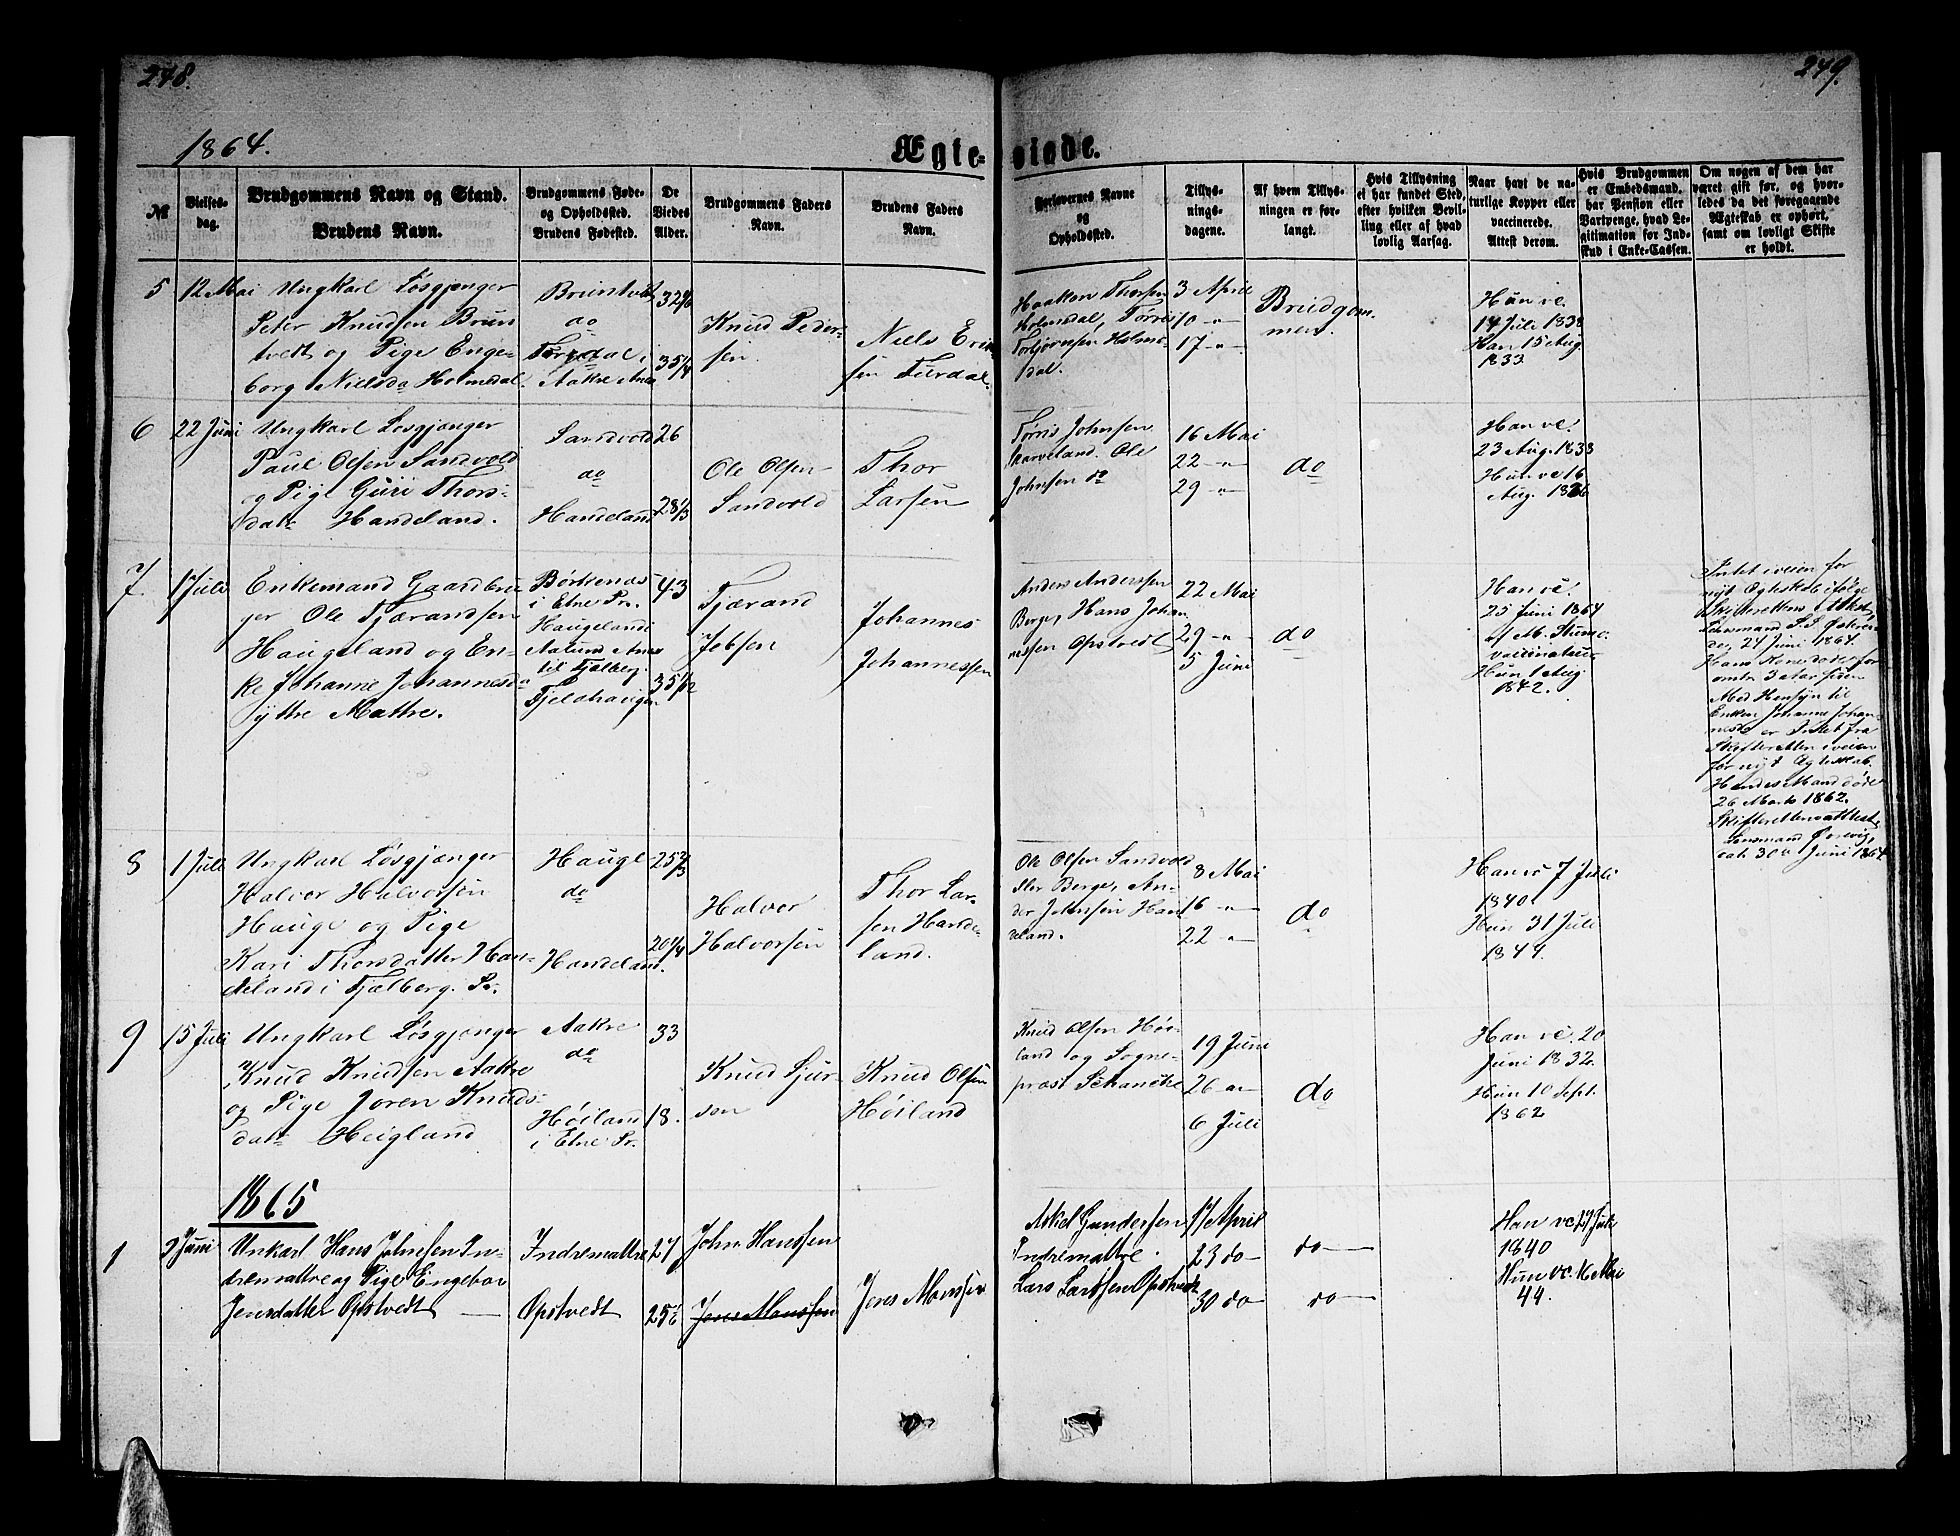 248.
249.
1864.
Ægte-
viede.
№
Vielses-
dag.
Brudgommens Navn og Stand.
Brudens Navn.
Brudgommens Føde-
og Opholdssted.
Brudens Fødested.
De
Viedes
Alder.
Brudgommens Faders
Navn.
Brudens Faders
Navn.
Forlovernes Navne
og
Opholdssted.
Tillys-
nings-
dagene.
Af hvem Tillys-
ningen er for-
langt.
Hvis Tillysning
ei har fundet Sted,
efter hvilken Bevil-
ling eller af hvad
lovlig Aarsag.
Naar havt de na-
turlige Kopper eller
vaccinerede.
Attest derom.
Hvis Brudgommen
er Embedsmand,
har Pension eller
Vartpenge, hvad Le-
gitimation for Ind-
skud i Enke-Cassen.
Om nogen af dem har
været gift før, og hvor-
ledes da det foregaaende
Ægteskab er ophørt,
samt om lovligt Skifte
er holdt.
5
12 Mai
Ungkarl Løsgjænger
Peter Knudsen Brun
tvedt og Pige Enge-
borg Nielsda Holmedal.
Bruntvedt
do
i
Aakre
32
35 1/4
Knud Peder-
sen.
Niels Erik
sen Furdal.
Haakon Thorsen
Holmedal, Tørres
Torbjørnsen Holme-
dal.
3 April
10 -"-
17 -"-
Brudgom-
men.
Hun ve.
14 Juli 1838
Han 15 Aug.
1833
6
22 Juni
Ungkarl Løsgjænger
Paul Olsen Sandvold
og Pige Guri Thors-
datr Handeland.
Sandvold
do
Handeland
26
28 1/3
Ole Olsen
Sandvold
Thor
Larsen
Tørris Johnsen
Skarveland. Ole
Johnsen do
16 Mai
22 -"-
29 -"-
do
Han ve.
23 Aug. 1838
Hun ve 16
Aug. 1836
7.
1 Juli
Enkemand Gaardbru
ger Ole Tjærandsen
Haugeland og En-
ke Johanne Johannesda
Yttre Mattre.
Børkenæs
i Etne Pr.
Haugeland i
Aalund Anex
til Fjelberg.
Fjeldhaugen
43
35
Tjærand
Jobsen
Johannes
Johannessen
Anders Andersen
Berge, Hans Johan
nessen Opstvedt
22 Mai
29 -"-
5 Juni
do
Han ve.
25 Juni 1864
af Mb. Stumo
vaccinateur
Hun 1 Aug.
1842.
Intet i veien for
nyt Ægteskab ifølge
Skifterettens Attest,
Lensmand
24 Juni 1864.
Hans Kone døde for
omtr. 3 Aar siden
Med Hensyn til
Enken Johanne Johan-
nesda er Intet fra
Skifteretten i veien
for nyt Ægteskab.
Hendes Mand døde
26 Marts 1862.
Skifterettens Attest,
Lensmand
dat. 30 Juni 1864.
8
1 Juli
Ungkarl Løsgjænger
Halvor Halvorsen
Hauge og Pige
Kari Thorsdatter Han-
deland i Fjælberg. Pr.
Hauge
do
Handeland.
25 2/3
20 1/4
Halvor
Halvorsen
Thor Lar-
sen Hande-
land.
Ole Olsen Sandvold
eller Berge, An-
der Johnsen Han
deland.
8 Mai
16 -"-
22 -"-
do
Han ve 7 Juli
1840
Hun 31 Juli
1844.
9
15 Juli
Ungkarl Løsgjænger
Knud Knudsen Aakre
og Pige Joren Knuds-
datr Heigland
Aakre
do
Høiland
i Etne Pr.
33
18.
Knud Sjur-
sen
Knud Olsen
Høiland
Knud Olsen Høi-
land og Sogne-
præst Schanche
19 Juni
26 -"-
6 Juli
do
Han ve. 20
Juni 1832.
Hun 10 Sept.
1862
1865
1
2 Juni
Unkarl Hans Johnsen In-
dremattre og Pige Engebor
Jensdatter Opstvedt
Indremattre
Opstvedt
27
25
John Hanssen
Jens Monssen
Jens Monssen
Askel Gundersen
Indremattre.
Lars Larssen Opstvedt
17 April
23 do
30 do
do
do
Han ve 27 Juli
1840
Hun vc. 16 Mai
44.